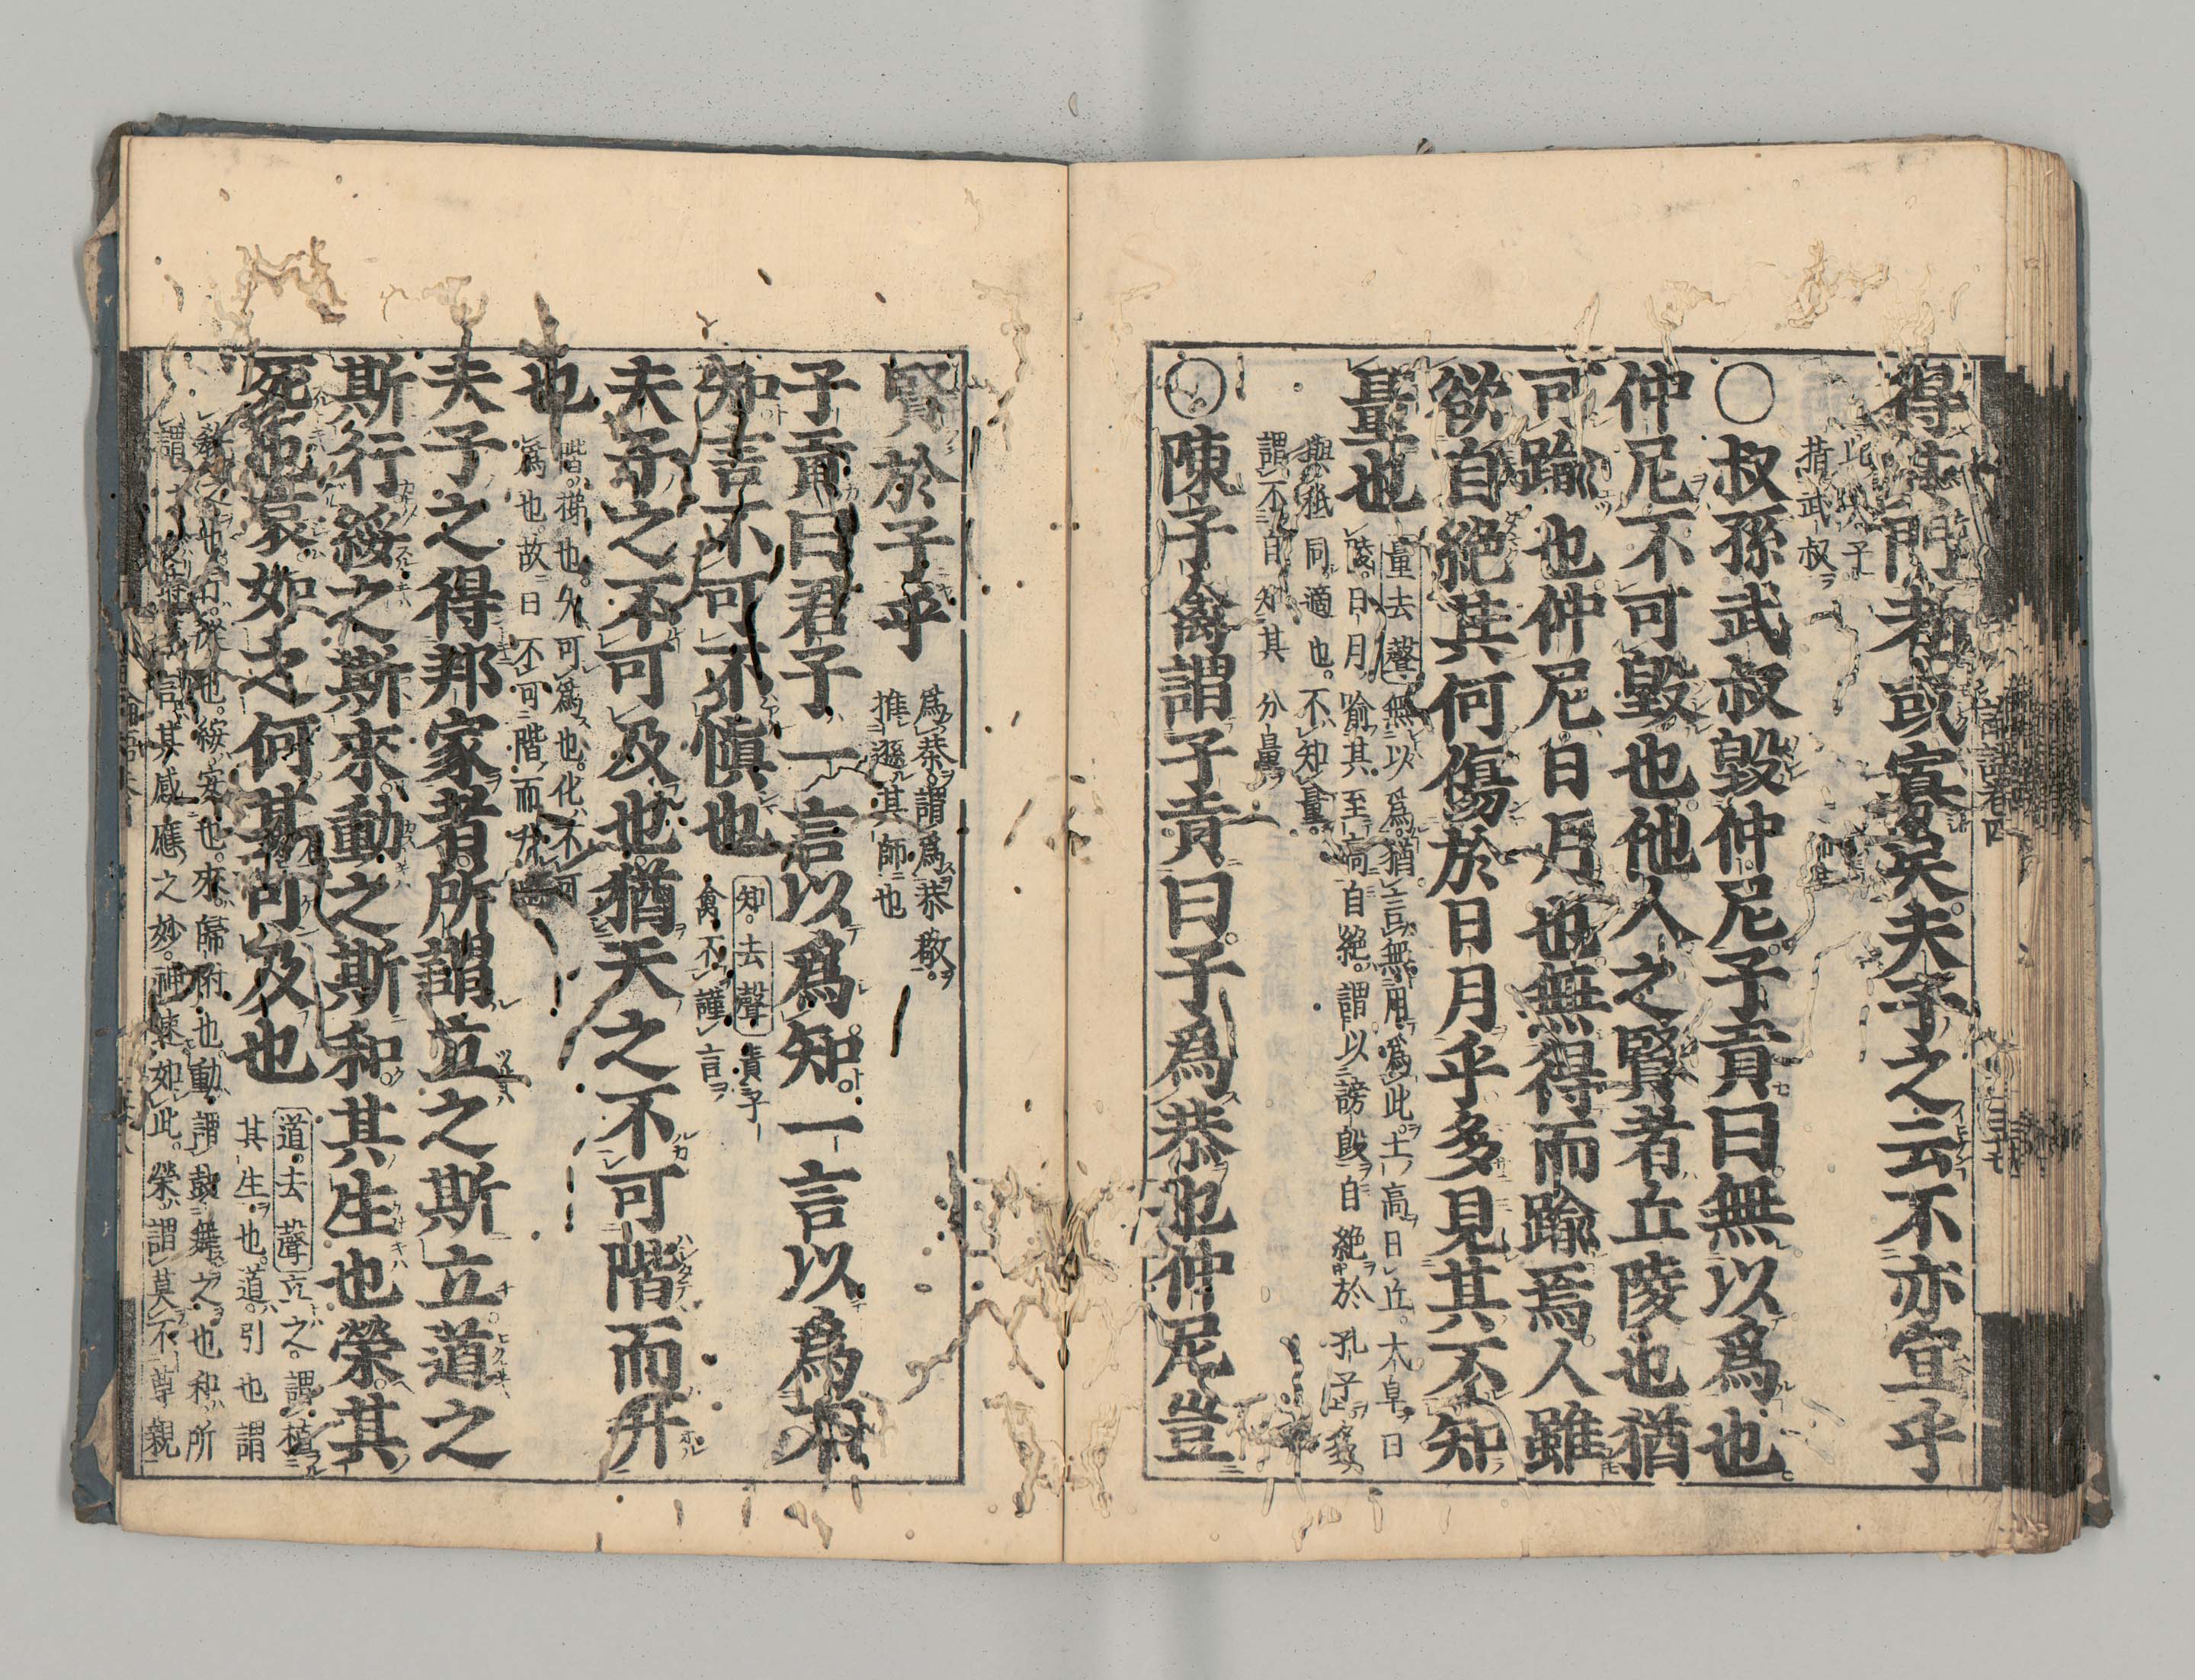 得其門者或寡矣夫子之云不亦宜乎
此夫子
指武叔
○叔孫武叔毀仲尼子貢曰無以爲也
仲尼不可毀也他人之賢者丘陵也猶
可踰也仲尼日月也無得而踰焉人雖
欲自絶其何傷於日月乎多見其不知
量也
量去聲無以爲猶言無用爲此土高曰丘大阜曰
陵日月踰其至高自絶謂以謗毀自絶於孔子多
與秖同適也不知量
謂不自知其分量
○陳子禽謂子貢曰子爲恭也仲尼豈
賢於子乎
爲恭謂爲恭敬
推遜其師也
子貢曰君子一言以爲知一言以爲不
知言不可不愼也
知去聲責子
禽不謹言
夫子之不可及也猶天之不可階而升
也
階梯也大可爲也化不可
爲也故曰不可階而升
夫子之得邦家者所謂立之斯立道之
斯行綏之斯來動之斯和其生也榮其
死也哀如之何其可及也
道去聲立之謂植
其生也道引也謂
教之也行從也綏安也來歸附也動謂鼓舞之也和所
謂於變時雍言其感應之妙神速如此榮謂莫不尊親